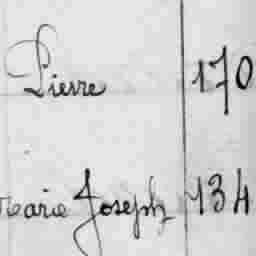 Pierre 170
Marie Joseph 134